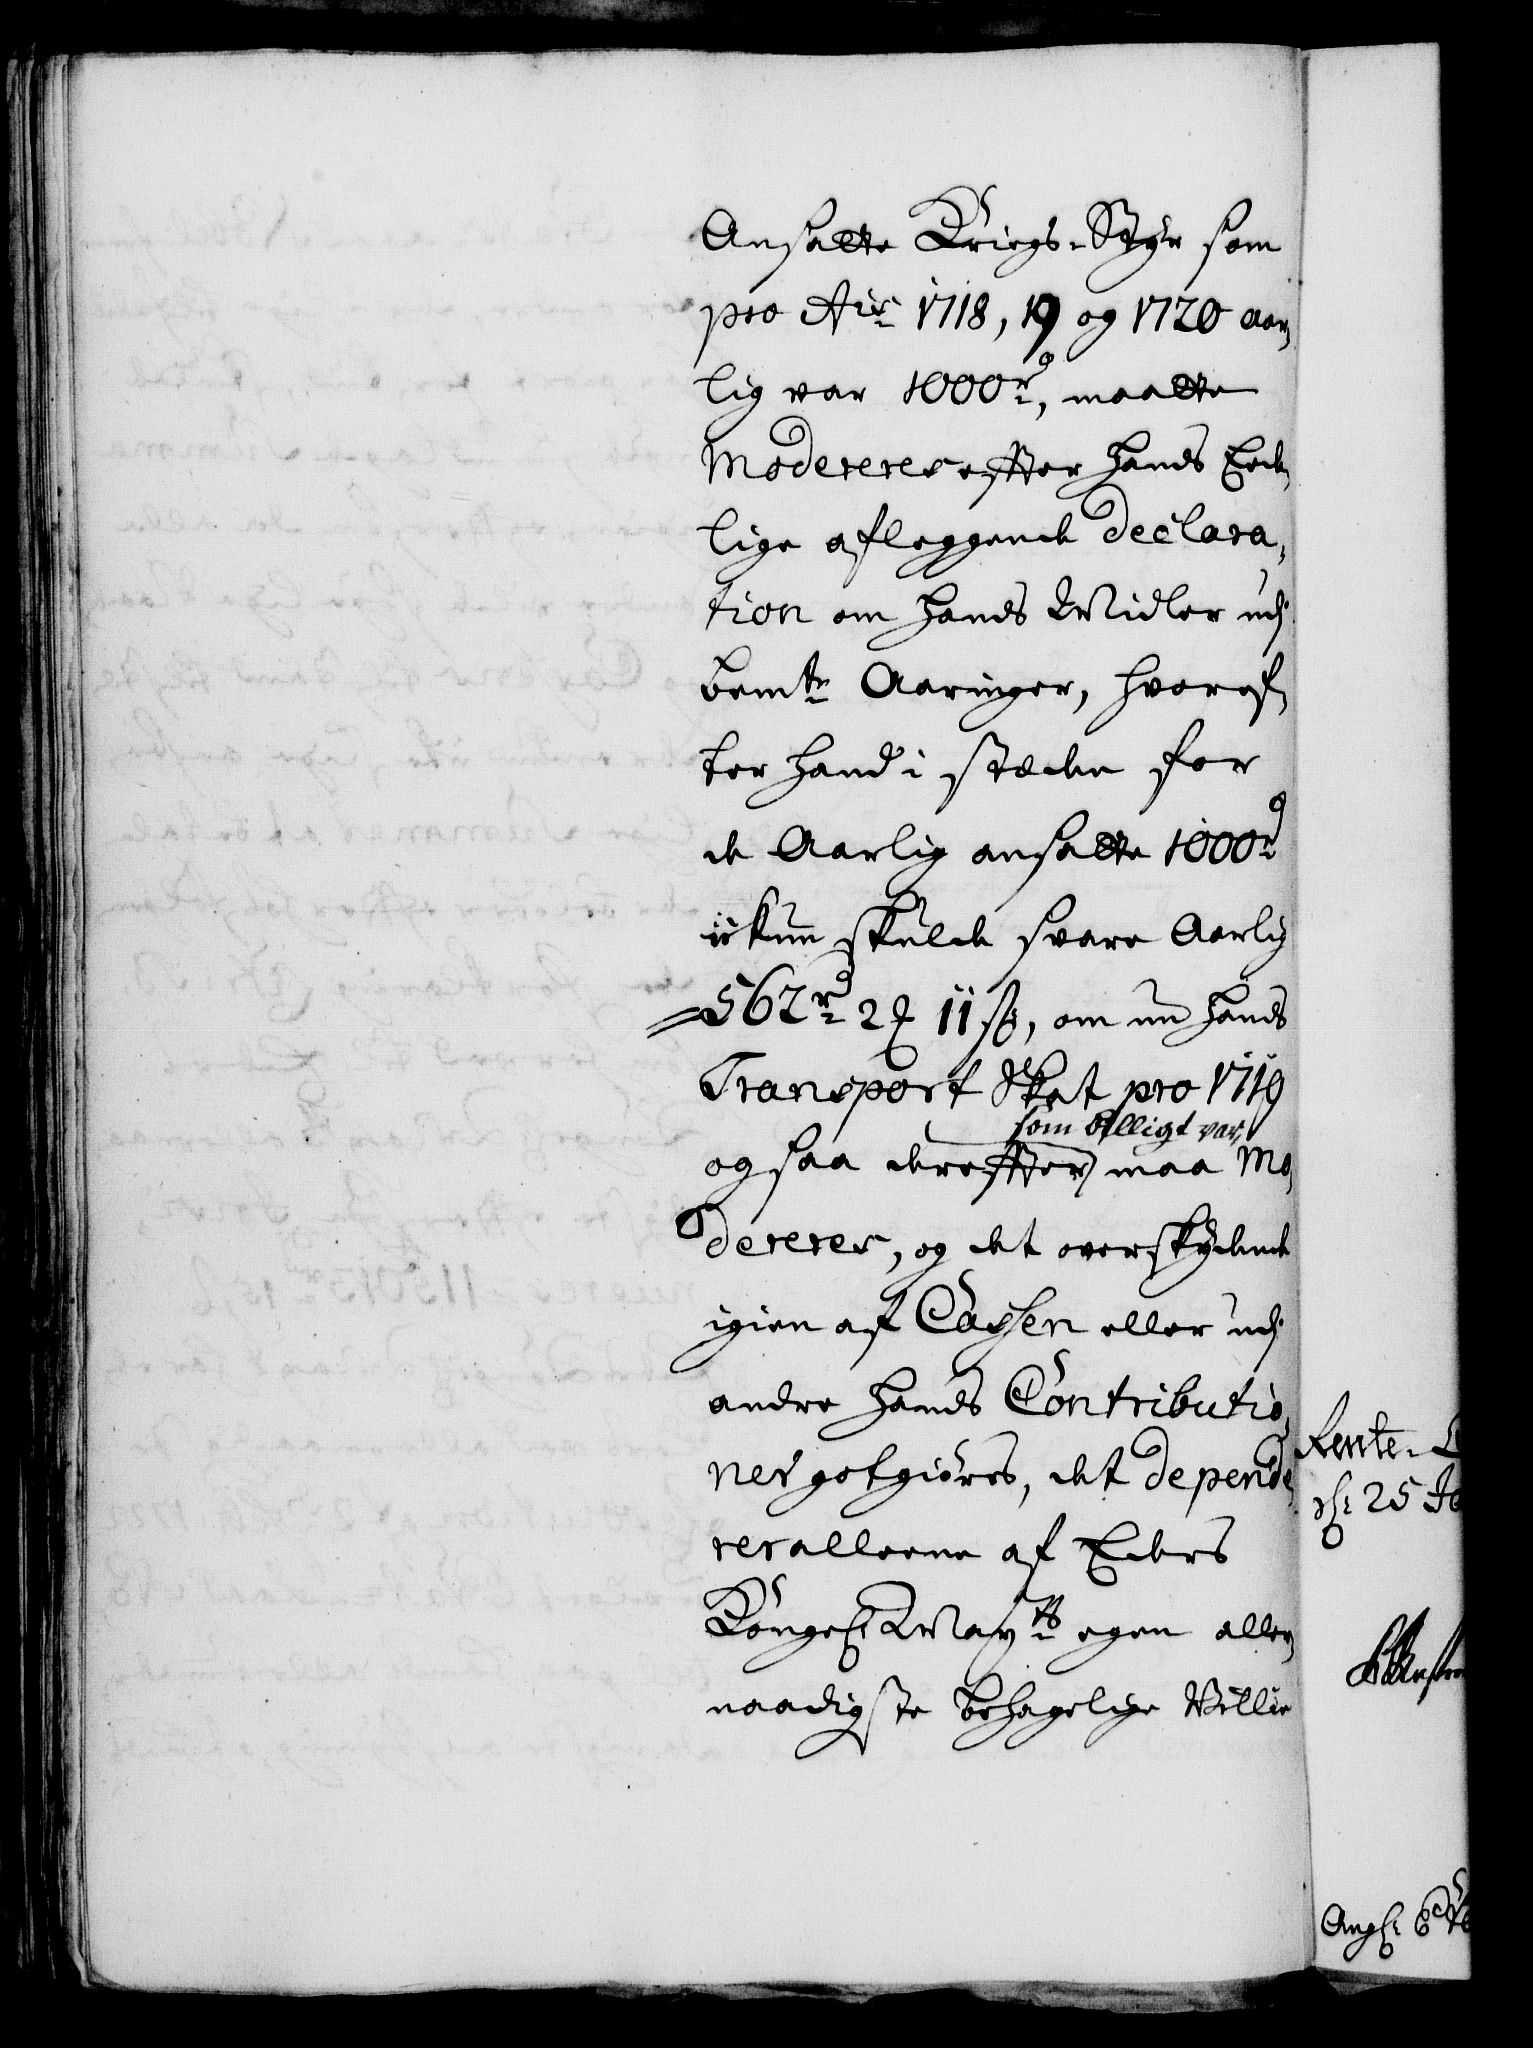 Ansatte Kriegs-Styr som
pro Ais 1718, 19 og 1720 aar,
lig var 1000rd, maatte
Modereres effter hands Eed,
lige aflæggende declara,
tion om hands Midler udj
bemte Aaringer, hvoref,
ter hand i stæden for
de Aarlig ansatte 1000rd
ickun skulde svare Aarlig
562rd 2 11 s, om nu hands
Transport Skat pro 1719
som billigt var,
og saa dereffter maa Mo,
dereres, og det overskydende
igien af Cassen eller udj
andre hands Contributio,
ner gotgiøres, det depende,
rer alleene af Eders
Kongel Mayts egen aller
naadigste behagelige Villie
Rente-
d 25
Angl